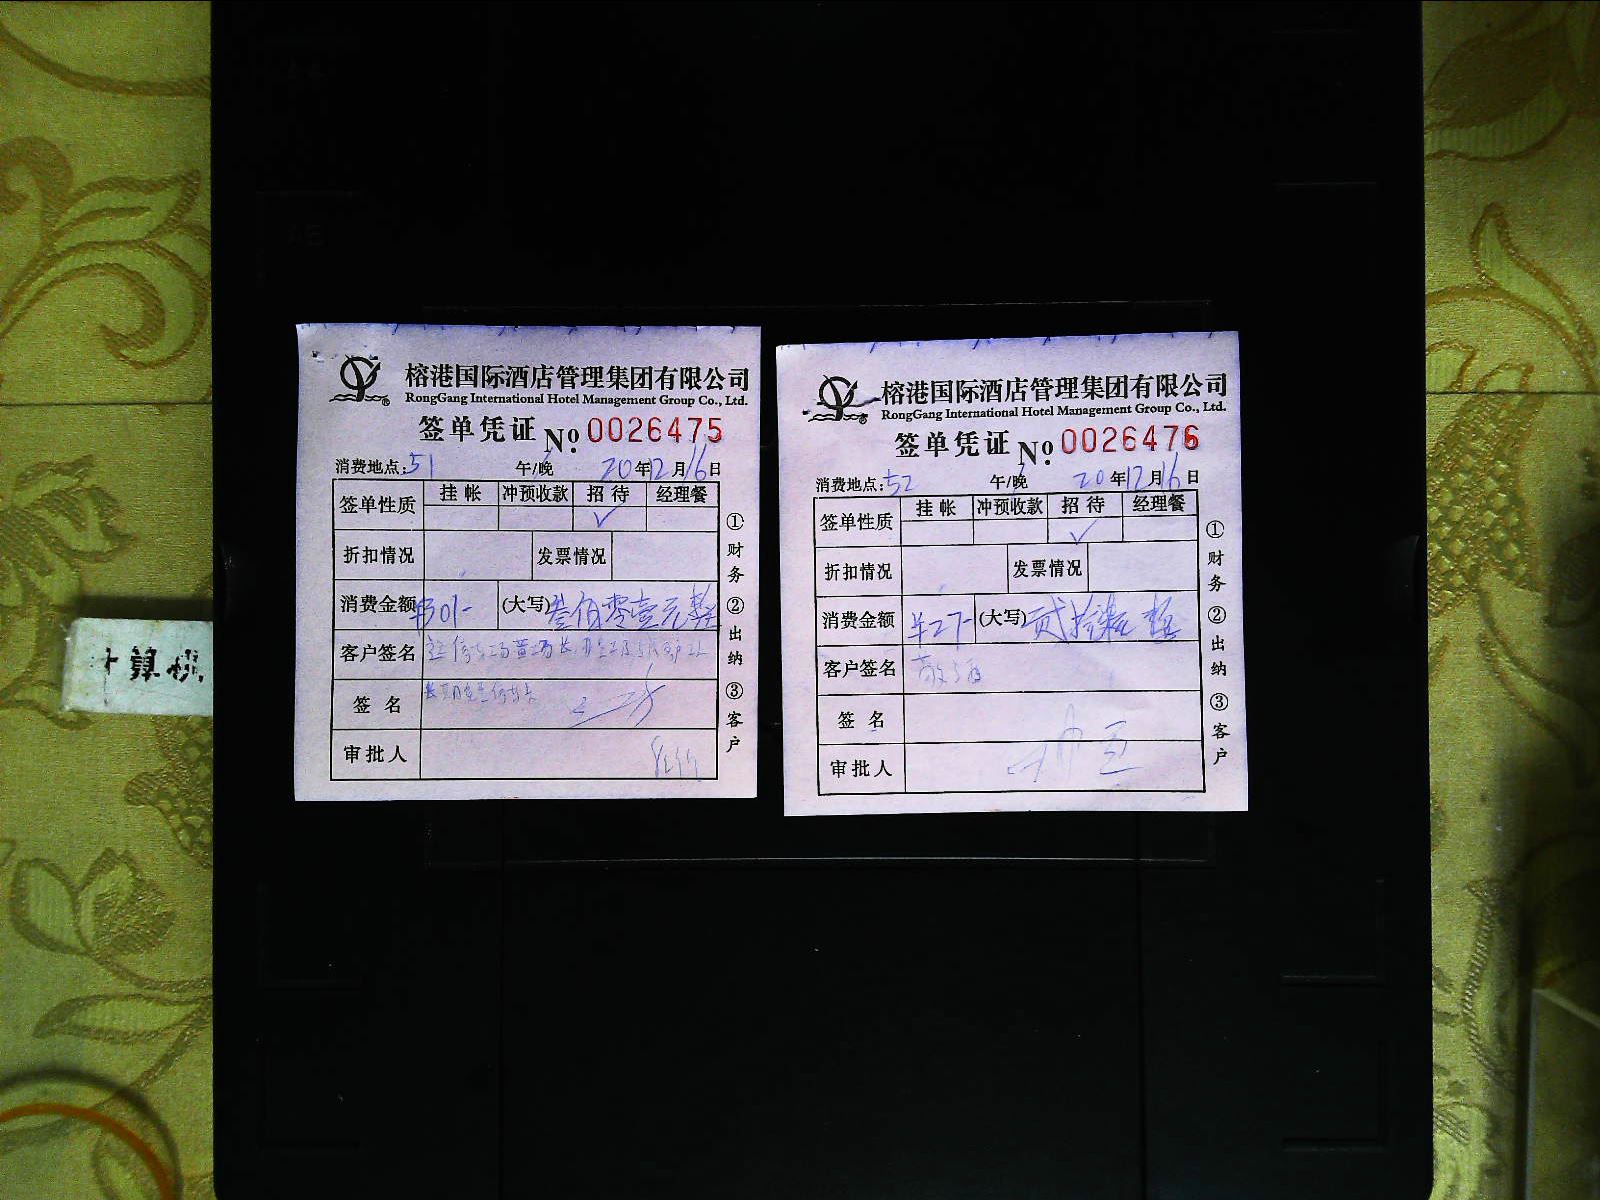 榕港国际酒店管理集团有限公司
RongGang International Hotel Management Group Co., Ltd.
签单凭证 No. 0026475
消费地点:51 午/晚 20年12月16日
签单性质 挂帐 冲预收款 招待 经理餐
✓
折扣情况 发票情况
消费金额 ¥301- (大写) 叁佰零壹元整
客户签名
签名
审批人
①财务②出纳③客户
榕港国际酒店管理集团有限公司
RongGang International Hotel Management Group Co., Ltd.
签单凭证 No. 0026476
消费地点:52 午/晚 20年12月16日
签单性质 挂帐 冲预收款 招待 经理餐
✓
折扣情况 发票情况
消费金额 ¥27- (大写) 贰拾柒元整
客户签名
签名
审批人
①财务②出纳③客户
计算机